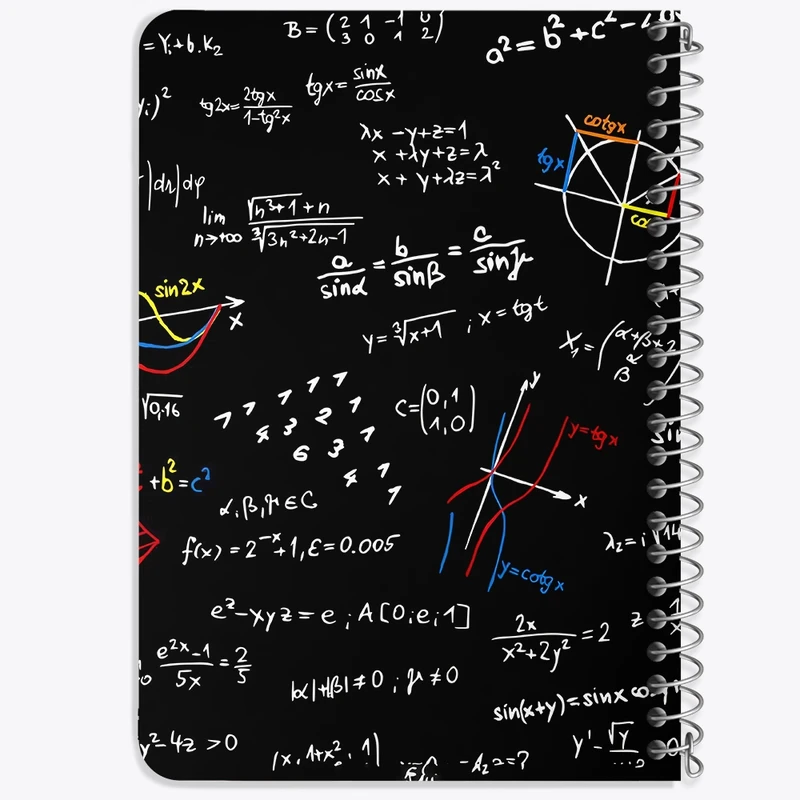 = Yᵢ + b·k₂
B = (2 1 -1 0
3 0 1 2)
a² = b² + c² - 2
tg2x = 2tgx / 1-tg²x
tgx = sinx / cosx
λx - y + z = 1
x + λy + z = λ
x + y + λz = λ²
cotgx
tgx
|dr|dφ
lim n→+∞ √n³+1 + n / ∛3n²+2n-1
a/sinα = b/sinβ = c/sinγ
sin2x
x
y = ∛x+1 ; x = tgt
X₁ = (α+β+2
β α
β
√0,16
1 1 1 1 1
4 3 2 1
6 3 1
4 1
1
C = (0,1
1,0)
y
y=tgx
x
+b²=c²
α,β,γ∈C
sin
f(x) = 2⁻ˣ+1, ε = 0.005
λ₂ = i√14
y=cotgx
eᶻ - xyz = e ; A[0;e;1]
2x / x²+2y² = 2
z
e²ˣ-1 / 5x = 2/5
|α|+|β|≠0 ; γ≠0
sin(x+y) = sinx co
y²-4z >0
(x, 1+x², 1)
-λ₂=?
y' - √y